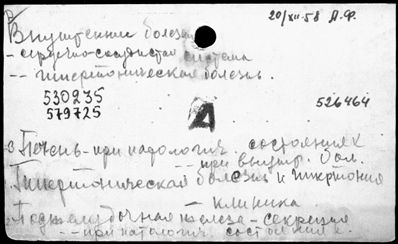 20/XII-58 А.Ф.
Внутренние болезни
- сердечно-сосудистая система
-- гипертоническая болезнь.
530235
579725
526464
А
с Печень - при патологич. состояниях
-- при внутр. бол.
Гипертоническая болезнь и гипертония
- клиника
Поджелудочная железа - секреция
-- при патологич. состояниях.